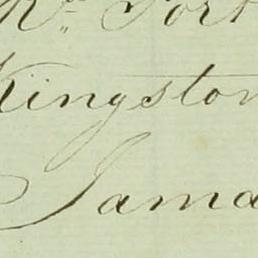 Port
Kingston
Jama